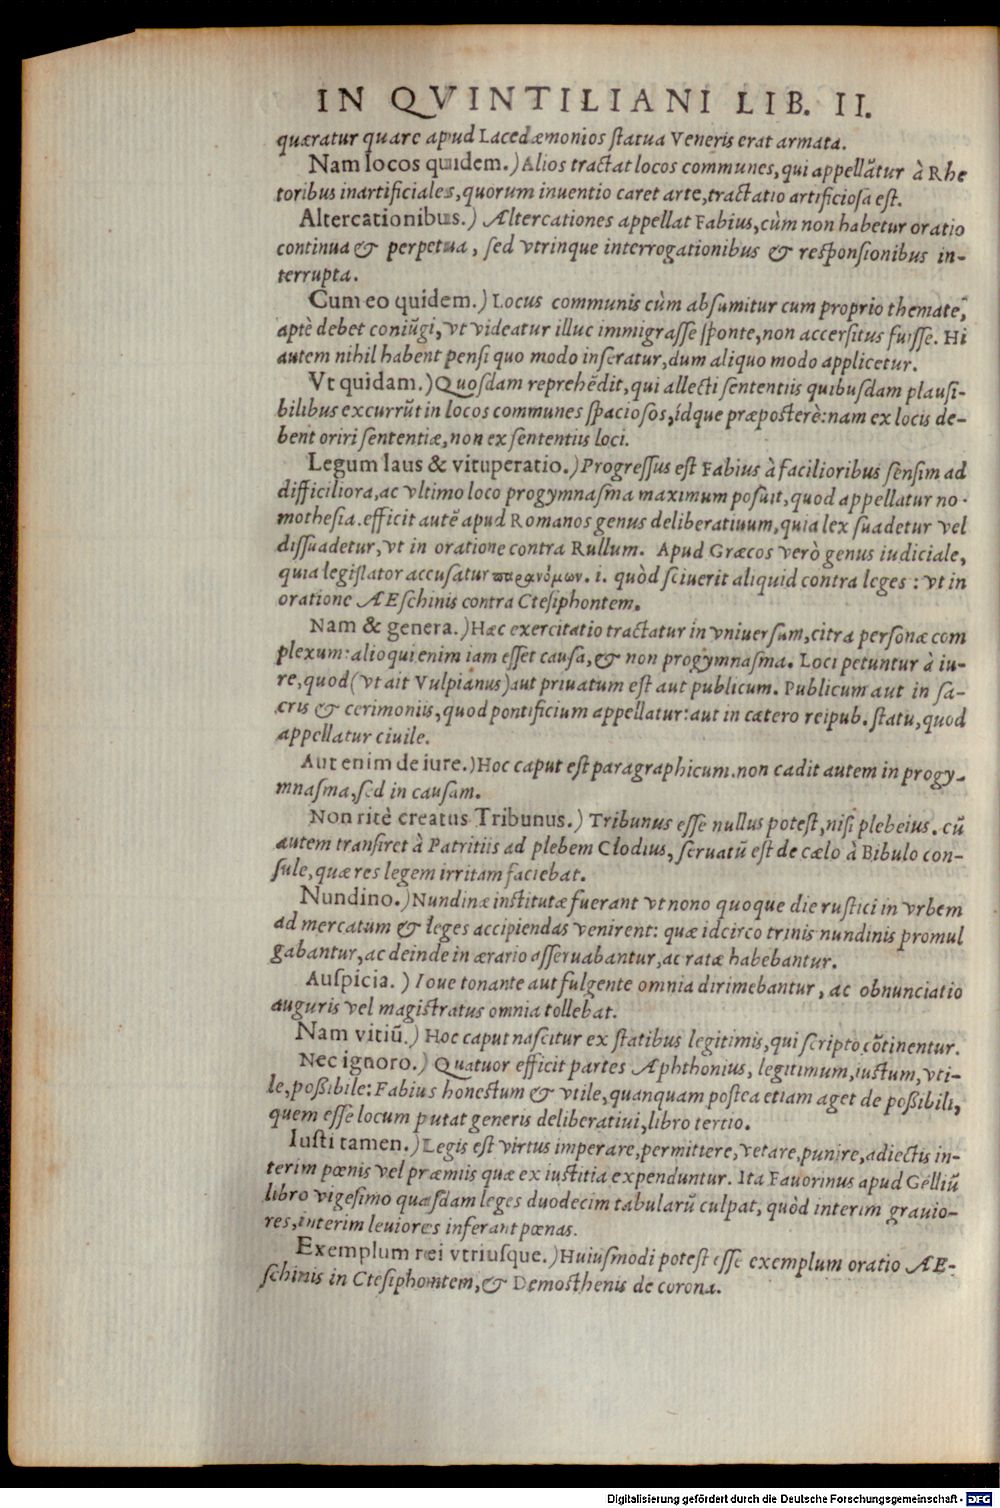 IN QVINTILIANI LIB. II.
quæratur quare apud Lacedæmonios statua Veneris erat armata.
Nam locos quidem.) Alios tractat locos communes, qui appellātur à Rhe
toribus inartificiales, quorum inuentio caret arte, tractatio artificiosa est.
Altercationibus.) Altercationes appellat Fabius, cùm non habetur oratio
continua & perpetua, sed vtrinque interrogationibus & responsionibus in-
terrupta.
Cum eo quidem.) Locus communis cùm absumitur cum proprio themate,
aptè debet coniūgi, vt videatur illuc immigrasse sponte, non accersitus fuisse. Hi
autem nihil habent pensi quo modo inseratur, dum aliquo modo applicetur.
Vt quidam.) Quosdam reprehēdit, qui allecti sententiis quibusdam plausi-
bilibus excurrūt in locos communes spaciosos, idque præposterè: nam ex locis de-
bent oriri sententiæ, non ex sententiis loci.
Legum laus & vituperatio.) Progressus est Fabius à facilioribus sensim ad
difficiliora, ac vltimo loco progymnasma maximum posuit, quod appellatur no-
mothesia. efficit autē apud Romanos genus deliberatiuum, quia lex suadetur vel
dissuadetur, vt in oratione contra Rullum. Apud Græcos verò genus iudiciale,
quia legislator accusatur παρανόμων. i. quòd sciuerit aliquid contra leges: vt in
oratione AEschinis contra Ctesiphontem.
Nam & genera.) Hæc exercitatio tractatur in vniuersum, citra personæ com
plexum: alioqui enim iam esset causa, & non progymnasma. Loci petuntur à iu-
re, quod (vt ait Vulpianus) aut priuatum est aut publicum. Publicum aut in sa-
cris & cerimoniis, quod pontificium appellatur: aut in cætero reipub. statu, quod
appellatur ciuile.
Aut enim de iure.) Hoc caput est paragraphicum. non cadit autem in progy-
mnasma, sed in causam.
Non ritè creatus Tribunus.) Tribunus esse nullus potest, nisi plebeius. cū
autem transiret à Patritiis ad plebem Clodius, seruatū est de cælo à Bibulo con-
sule, quæ res legem irritam faciebat.
Nundino.) Nundinæ institutæ fuerant vt nono quoque die rustici in vrbem
ad mercatum & leges accipiendas venirent: quæ idcirco trinis nundinis promul
gabantur, ac deinde in ærario asseruabantur, ac ratæ habebantur.
Auspicia.) Ioue tonante aut fulgente omnia dirimebantur, ac obnunciatio
auguris vel magistratus omnia tollebat.
Nam vitiū.) Hoc caput nascitur ex statibus legitimis, qui scripto cōtinentur.
Nec ignoro.) Quatuor efficit partes Aphthonius, legitimum, iustum, vti-
le, possibile: Fabius honestum & vtile, quanquam postea etiam aget de possibili,
quem esse locum putat generis deliberatiui, libro tertio.
Iusti tamen.) Legis est virtus imperare, permittere, vetare, punire, adiectis in-
terim pœnis vel præmiis quæ ex iustitia expenduntur. Ita Fauorinus apud Gelliū
libro vigesimo quasdam leges duodecim tabularū culpat, quòd interim grauio-
res, interim leuiores inferant pœnas.
Exemplum rei vtriusque.) Huiusmodi potest esse exemplum oratio AE-
schinis in Ctesiphontem, & Demosthenis de corona.
Digitalisierung gefördert durch die Deutsche Forschungsgemeinschaft - DFG